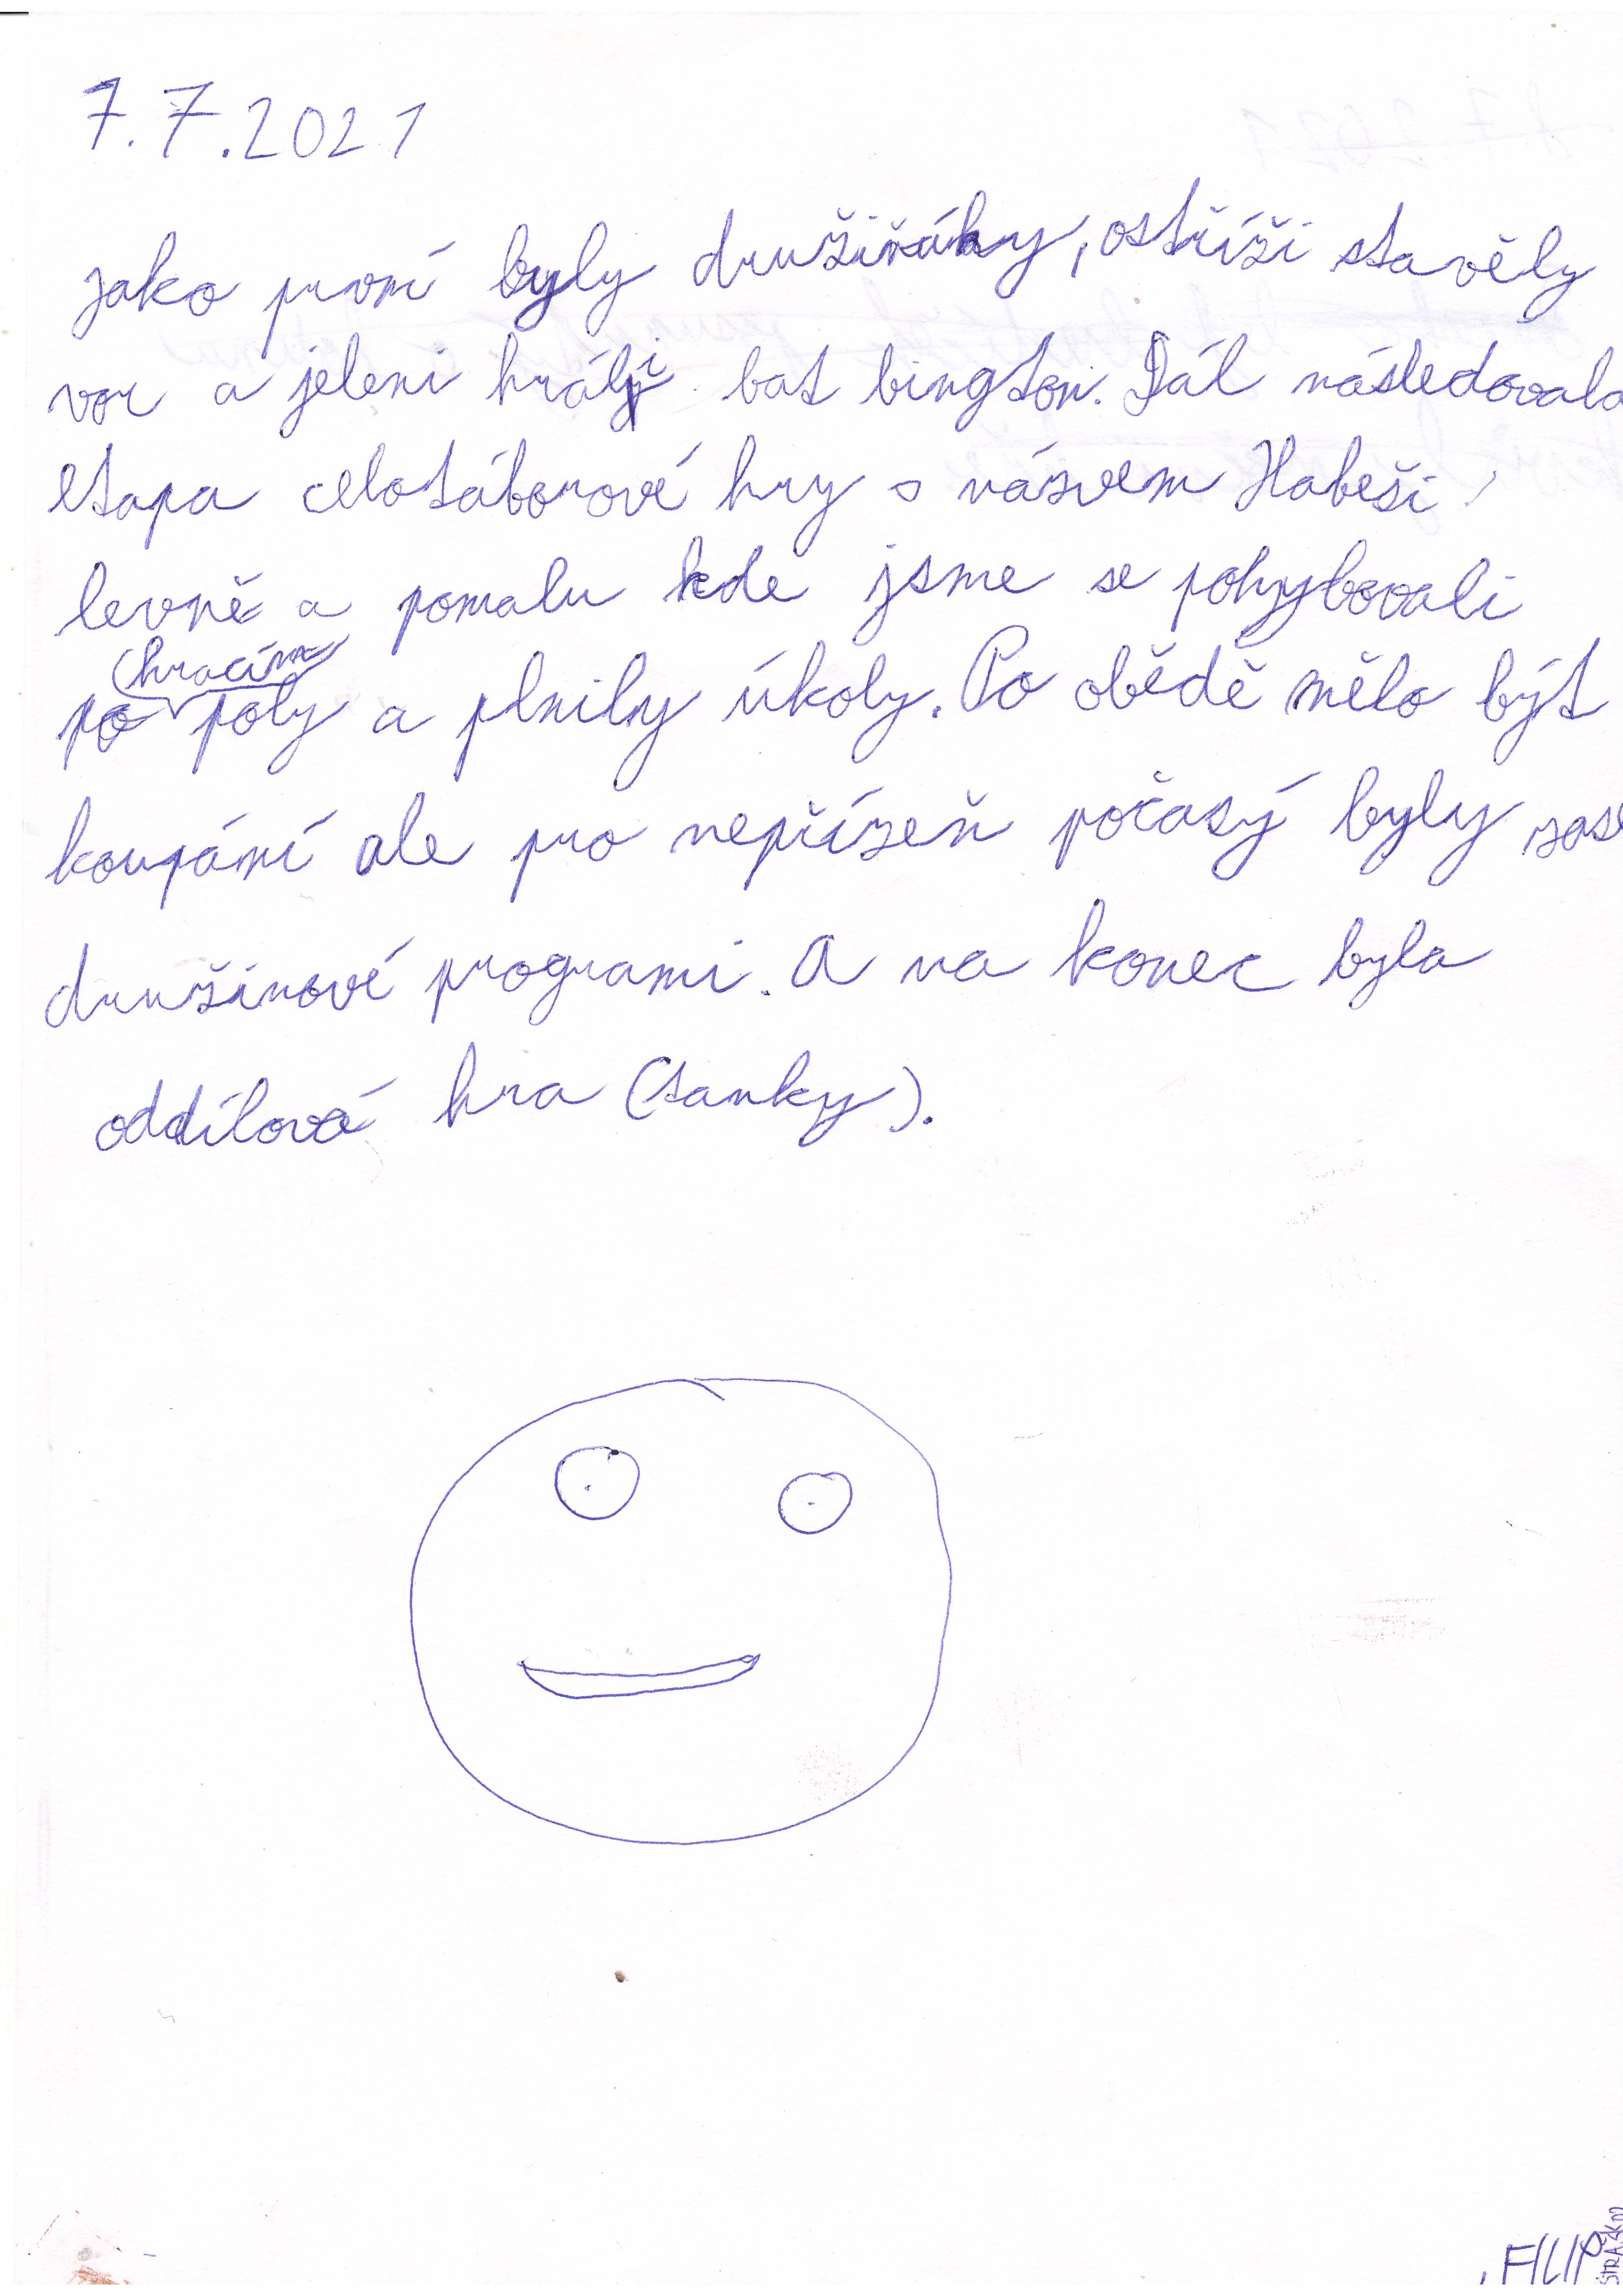 7.7.2021
jako první byly družiňáky, ostříži stavěly
vor a jeleni hráli bat bington. Dál následovala
etapa celotáborové hry s názvem Habeši
levně a pomalu kde jsme se pohybovali
po hracím poly a plnily úkoly. Po obědě mělo být
koupání ale pro nepřízeň počasý byly zase
družinové programi. A na konec byla
oddílová hra (tanky).
FILIP